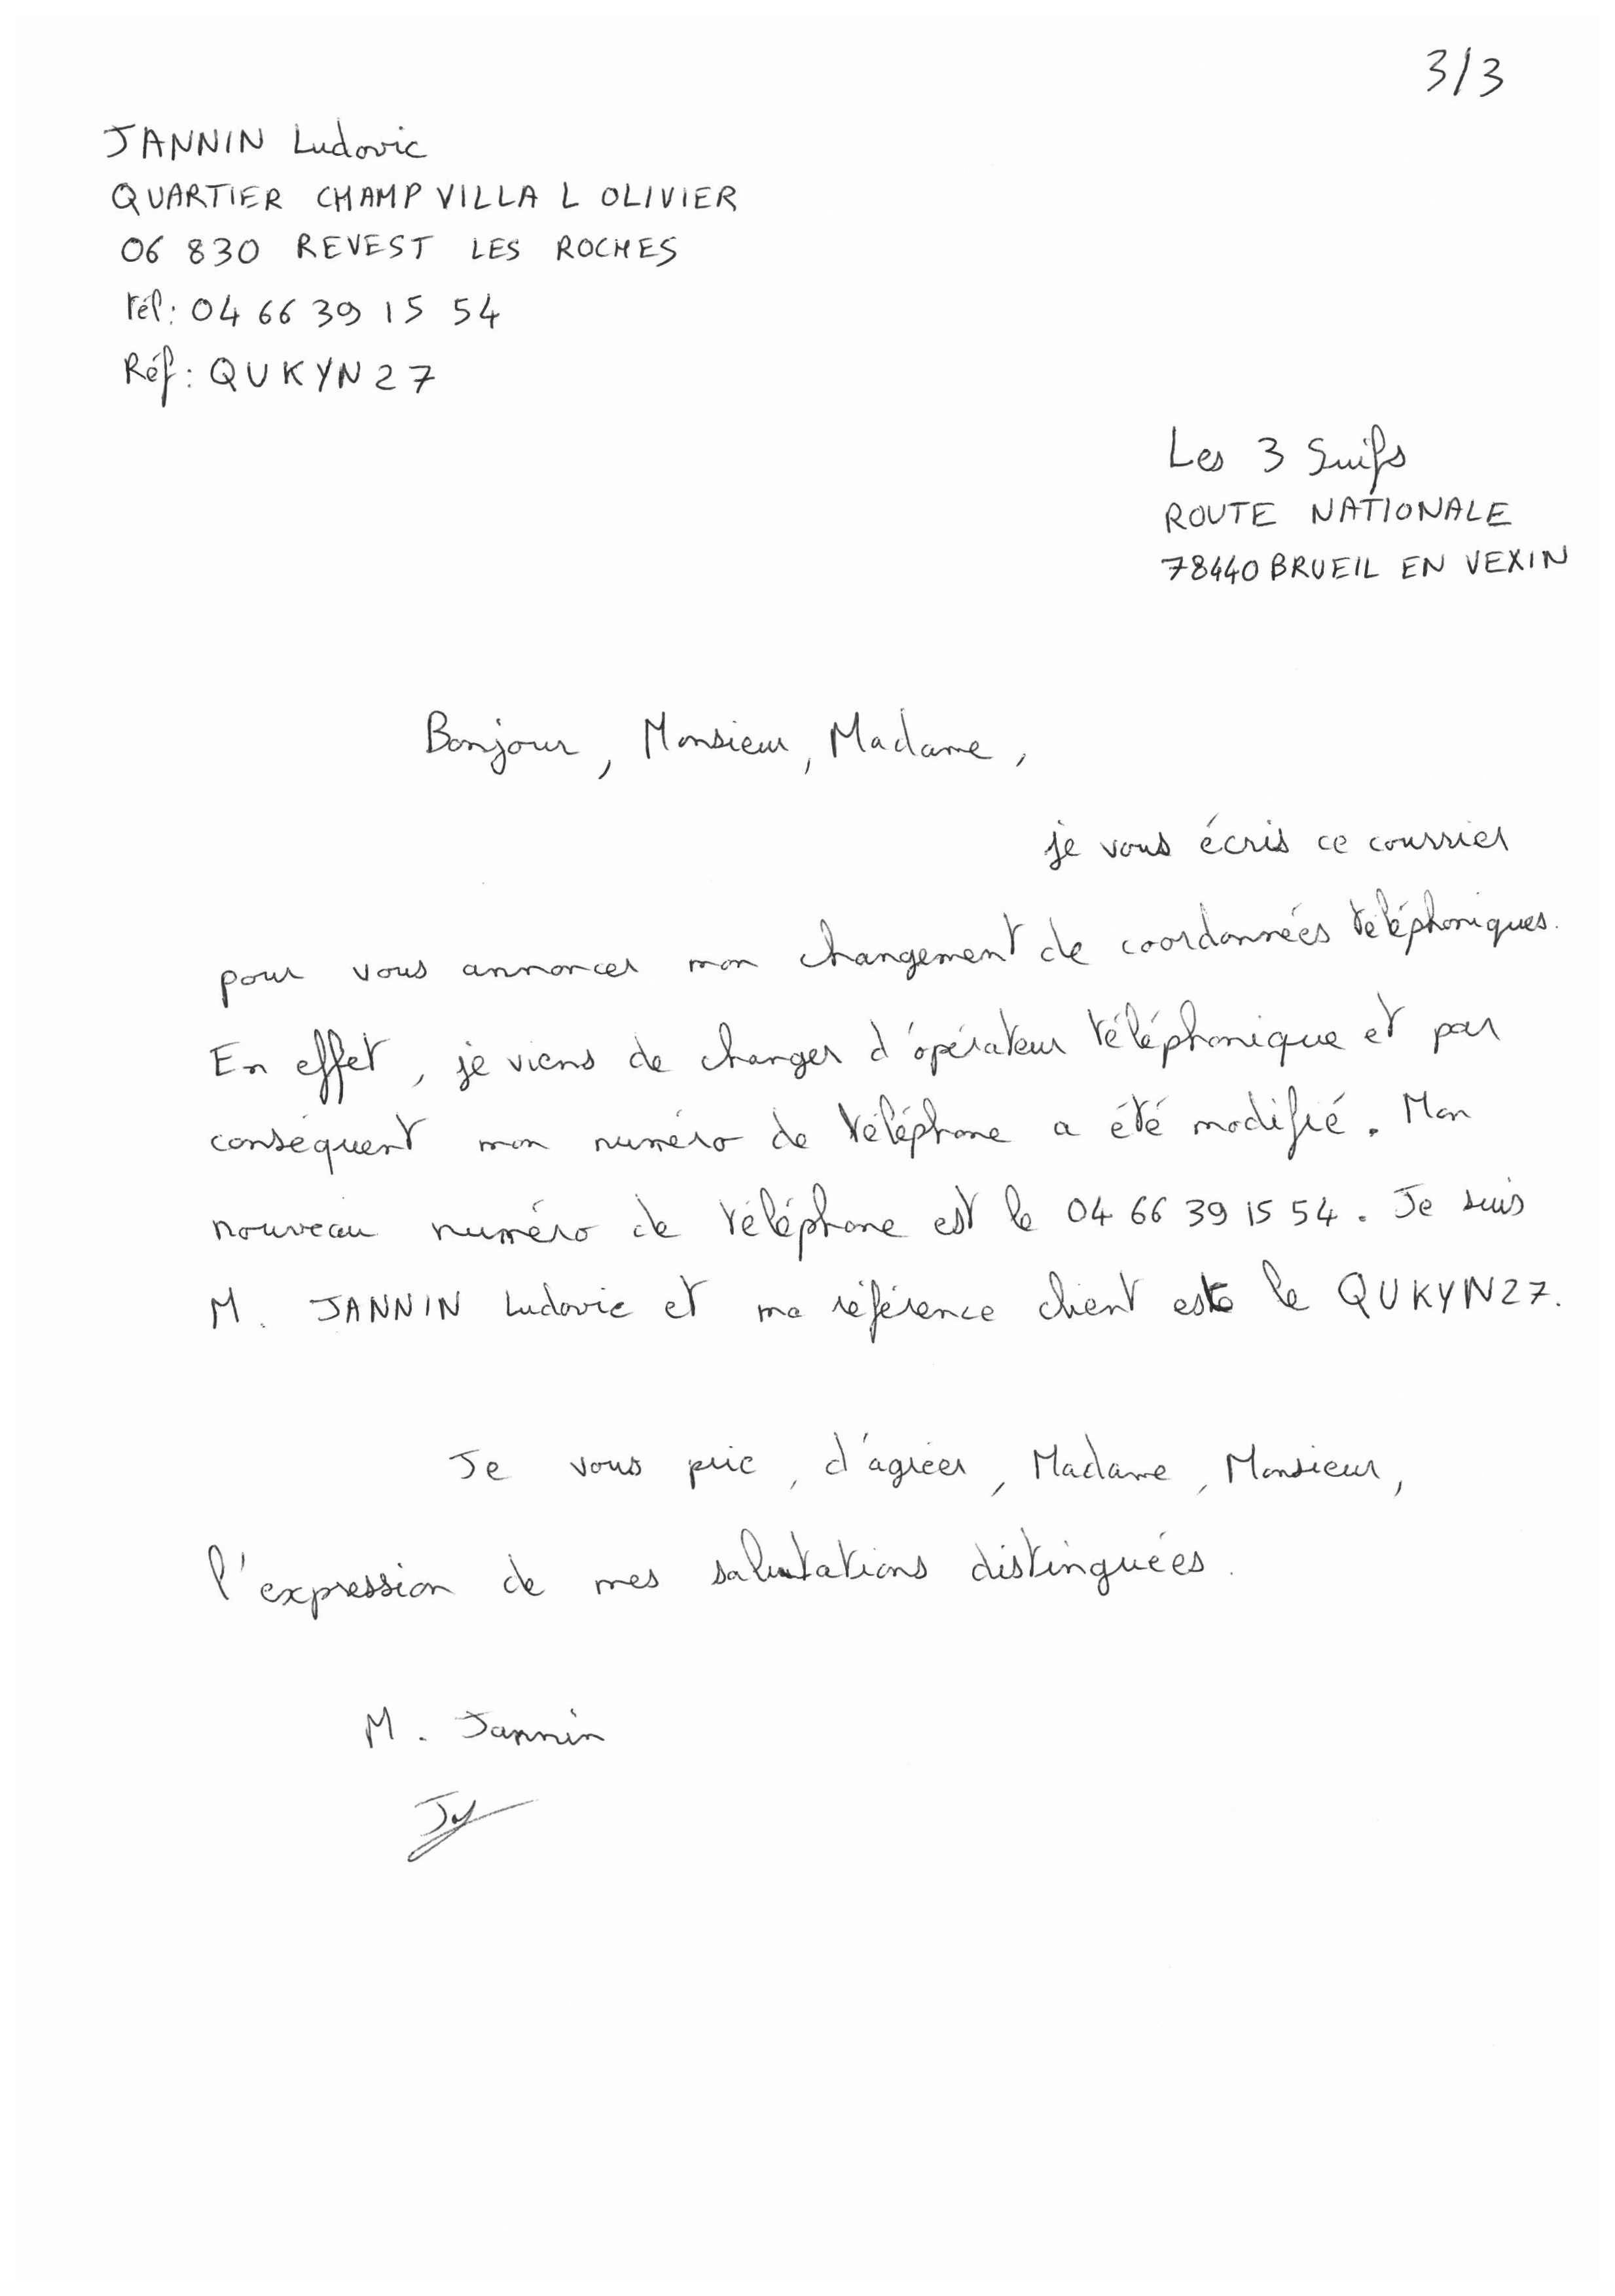 3/3
JANNIN Ludovic
QUARTIER CHAMP VILLA L OLIVIER
06 830 REVEST LES ROCHES
tél: 04 66 39 15 54
Réf: QUKYN27
Les 3 Suifs
ROUTE NATIONALE
78440 BRUEIL EN VEXIN
Bonjour, Monsieur, Madame,
je vous écris ce courrier
pour vous annoncer mon changement de coordonnées téléphoniques.
En effet, je viens de changer d'opérateur téléphonique et par
conséquent mon numéro de téléphone a été modifié. Mon
nouveau numéro de téléphone est le 04 66 39 15 54. Je suis
M. JANNIN Ludovic et ma référence client est le QUKYN27.
Je vous prie, d'agréer, Madame, Monsieur,
l'expression de mes salutations distinguées.
M. Jannin